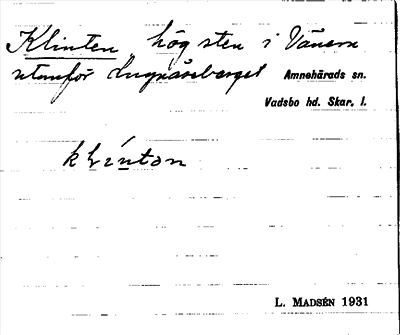 Klinten hög sten i Vänern
utanför Lugnåsberget Amnehärads sn.
Vadsbo hd. Skar. l.
klinton
L. MADSÉN 1931